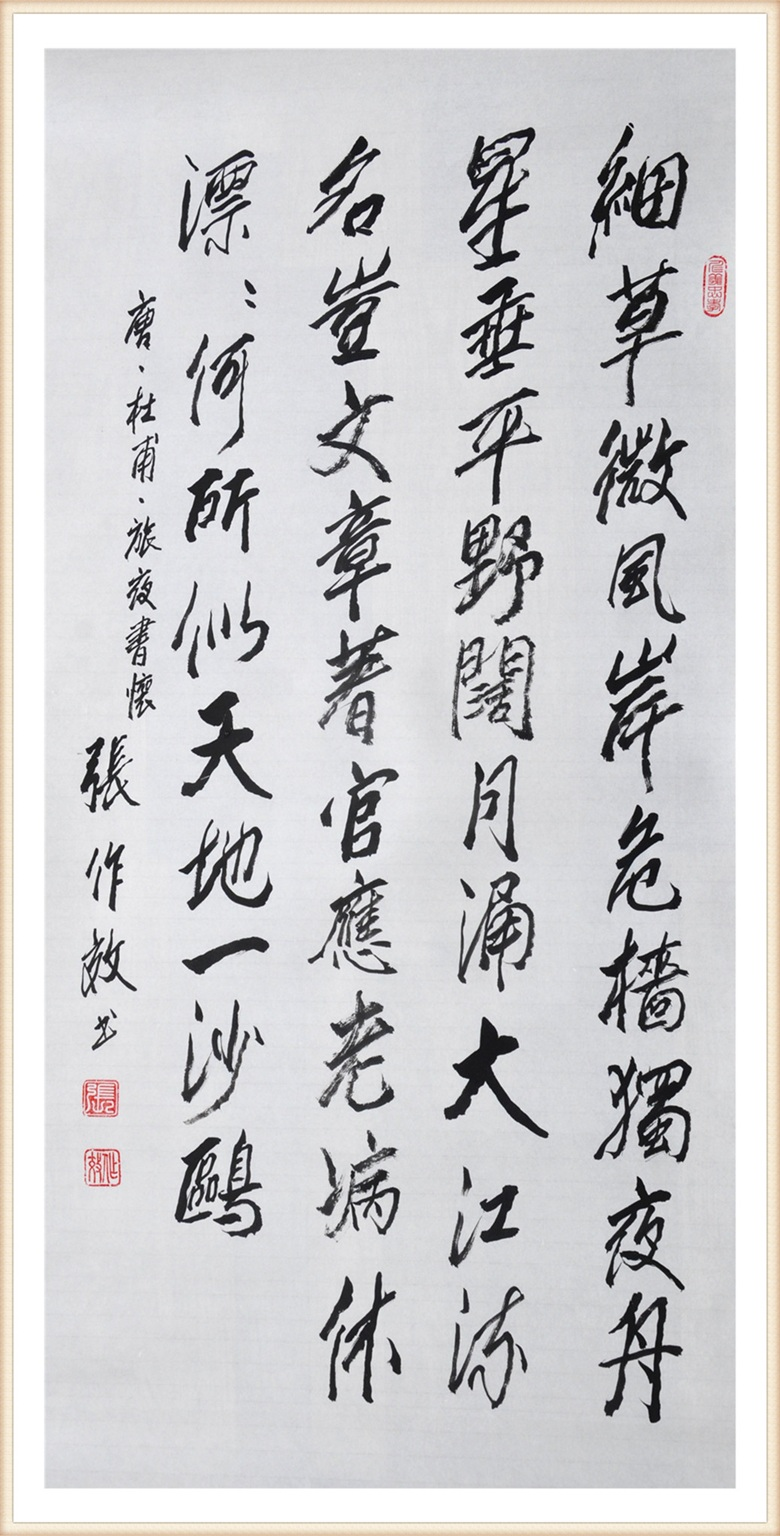 細草微風岸危檣獨夜舟
星垂平野闊月涌大江流
名豈文章著官應老病休
漂:何所似天地一沙鷗
唐、杜甫、旅夜書懷
張作效书
張
作效